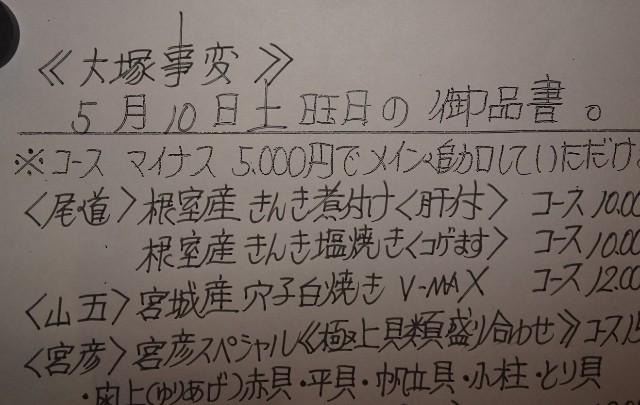 《大塚事変》
5月10日土旺日の御品書。
※コース マイナス 5.000円でメイン追加口していただけ
〈尾道〉根室産 きんき煮付け〈肝付〉 コース 10.00
根室産 きんき塩焼き〈コゲます〉 コース 10.00
〈山五〉宮城産 穴子白焼き V-MAX コース 12.00
〈宮彦〉宮彦スペシャル《極上貝類盛り合わせ》コース
・閖上(ゆりあげ)赤貝・平貝・帆立貝・小柱・とり貝